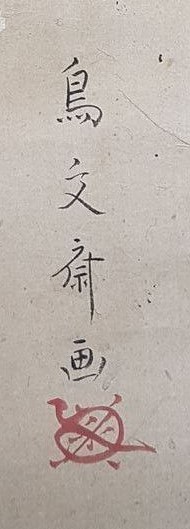 鳥文斎画